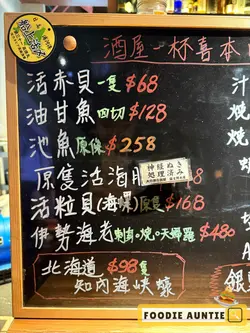 酒屋-杯喜本
活赤貝一隻$68
油甘魚四切$128
池魚原條$258
原隻活海
神経ぬき
処理済み
活粒貝(海螺)原隻$168
伊勢海老刺身。燒。天婦羅$480
北海道 $98隻
知內海峽蠔
銀
FOODIE AUNTIE